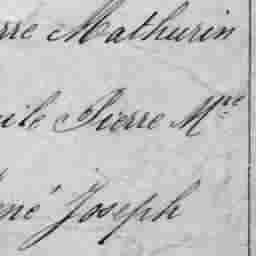 rre Mathurin
ile Pierre Mre
né Joseph